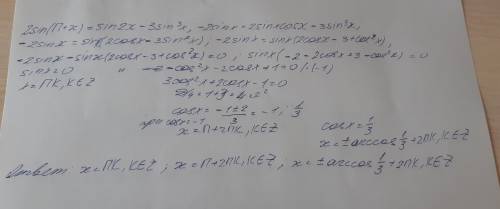 2sin(П+x)=sin2x-3sin³x, -2sinx=2sinxcosx-3sin³x,
-2sinx=sinx(2cosx-3sin²x), -2sinx=sinx(2cosx-3+cos²x),
-2sinx-sinx(2cosx-3+cos²x)=0; sinx(-2-2cosx+3-cos²x)=0
sinx=0 -cos²x-2cosx+1=0 /·(-1)
x=ПK, K∈Z 3cos²x+2cosx-1=0
Д/4=1+3=4=2²
cosx=(-1±2)/3=-1; 1/3
при cosx=-1 cosx=1/3
x=П+2ПK, K∈Z x=±arccos 1/3+2ПK, K∈Z
Ответ: x=ПK, K∈Z; x=П+2ПK, K∈Z, x=±arccos 1/3+2ПK, K∈Z